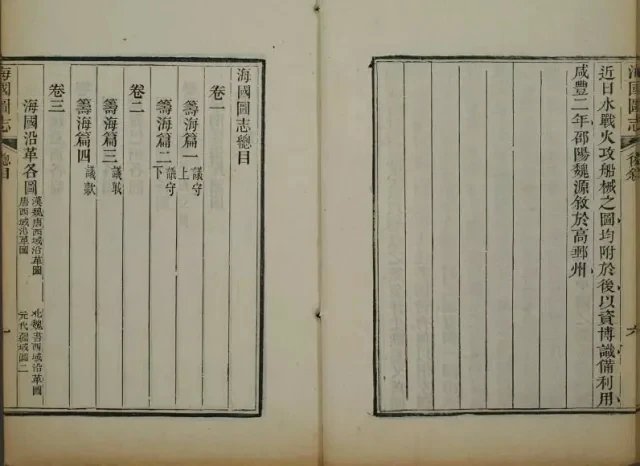 海國圖志
後敘
六
近日水戰火攻船械之圖均附於後以資博識備利用
咸豐二年邵陽魏源敘於高郵州
海國圖志總目
卷一
籌海篇一 議守上
籌海篇二 議守下
卷二
籌海篇三 議戰
籌海篇四 議款
卷三
海國沿革各圖
漢魏唐西域沿革圖
北魏書西域沿革圖
唐西域沿革圖
元代疆域圖二
海國圖志
總目
一